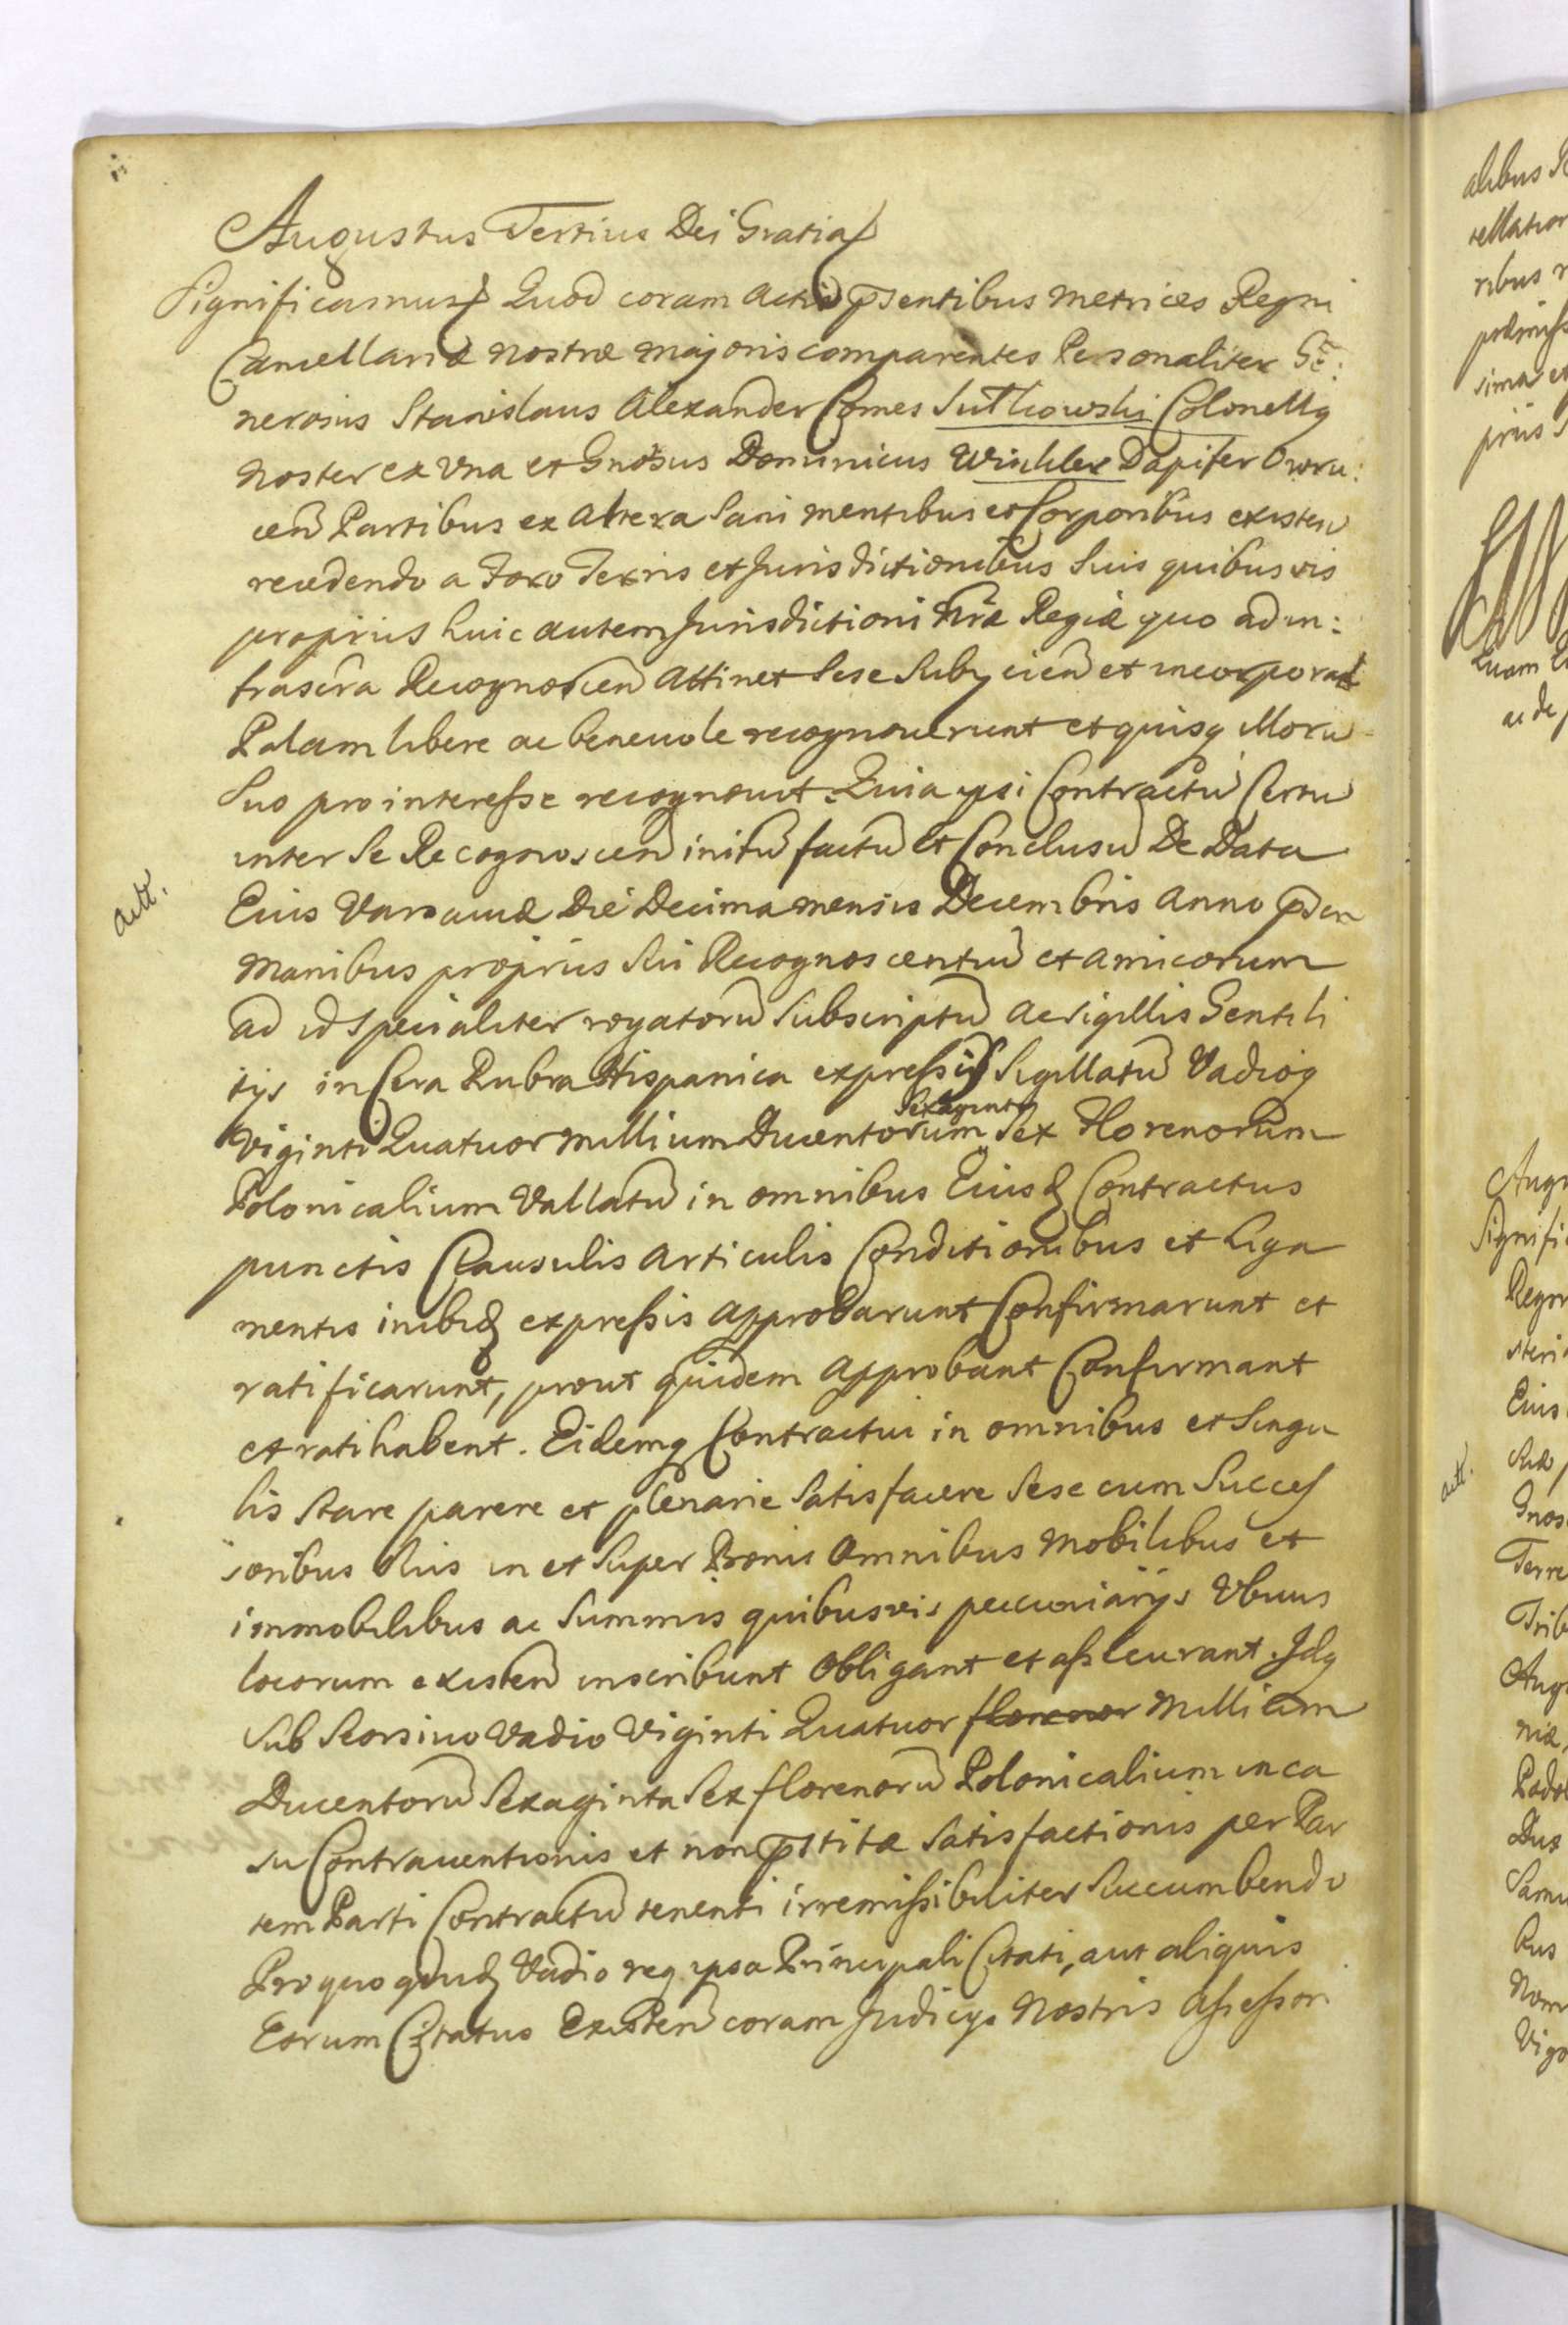 Augustus Tertius Dei Gratia
Significamus Quod coram Actis pñsentibus Metrices Regni
Cancellariæ Nostræ Majoris comparentes Personaliter Ge:
nerosius Stanislaus Alexander Comes Sułkowski Colonellg
Noster ex Vna et Gnosus Dominicus Winkler Dapifer Owru:
cen Partibus ex Altera Sani mentibus et Corporibus existen
recedendo a Foro Terris et Jurisdictionibus Suis quibusvis
proprius huic autem Jurisdictioni Nrae Regiæ quo ad in:
frascra Recognoscen Attinet Sese Subijcien et incorporan
Palam libere ac benevole recognoverunt et quisq Illoru
Suo pro interesse recognovit. Quia ipsi Contractu Certu
inter Se Recognoscen initu factu et Conclusu De Data
Eius Varsaviæ Die Decima mensis Decembris Anno pñsen
Manibus proprijs Sui Recognoscentiu et amicorum
ad id specialiter rogatoru Subscriptu ac sigillis Gentili
tijs in Cera Rubra Hispanica expressis Sigillatu Vadioq
Viginti Quatuor Millium Ducentorum Sexaginta Sex Florenorum
Polonicalium Vallatu in omnibus Eiusd Contractus
punctis Clausulis Articulis Conditionibus et Liga
mentis inibiq expressis approbarunt Confirmarunt et
ratificarunt, prout quidem approbant Confirmant
et ratihabent. Eidemq Contractui in omnibus et Singu
lis Stare parere et plenarie Satisfacere Sese cum Succes
soribus Suis in et Super Bonis Omnibus Mobilibus et
immobilibus ac Summis quibusvis pecuniarijs Vbivis
locorum existen inscribunt Obligant et assecurant. Idq
Sub Seorsivo Vadio Viginti Quatuor florenor Millium
Ducentoru Sexaginta Sex florenoru Polonicalium in ca
su Contraventionis et non pstitæ Satisfactionis per Par
tem Parti Contractu tenenti irremissibiliter Succumbendo
Pro quo qduq Vadio req ipsa Principali Citati, aut aliquis
Eorum Citatus Existen coram Judicijs Nostris Assessori
actt.